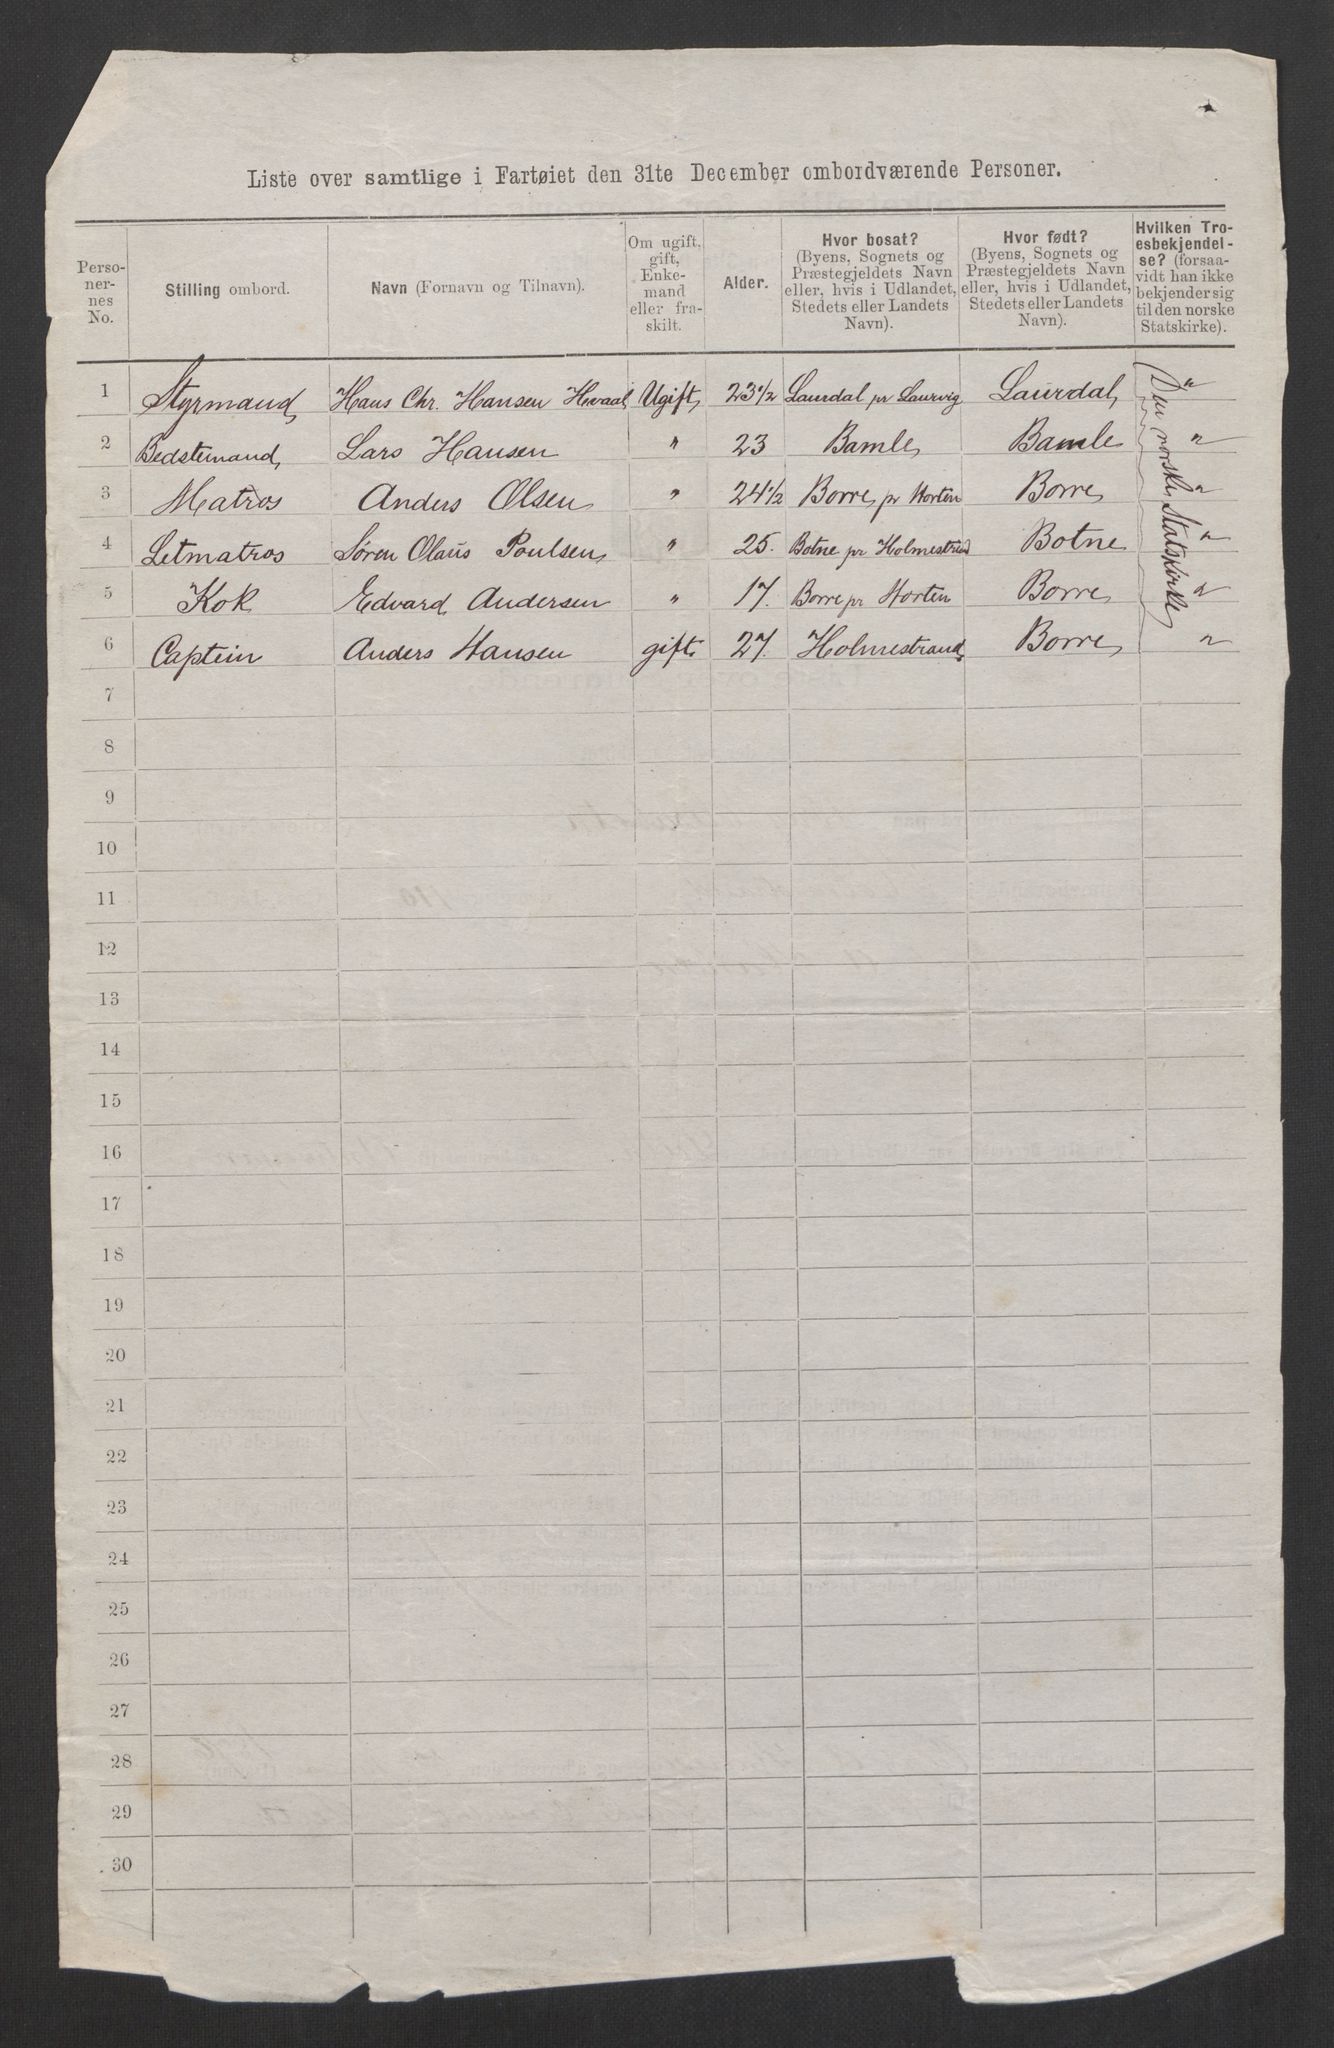 Liste over samtlige i Fartøiet den 31te December ombordværende Personer.
Perso-
ner-
nes
No.
Stilling ombord.
Navn (Fornavn og Tilnavn).
Om ugift,
gift,
Enke-
mand
eller fra-
skilt.
Alder.
Hvor bosat?
(Byens, Sognets og
Præstegjeldets Navn
eller, hvis i Udlandet,
Stedets eller Landets
Navn).
Hvor født?
(Byens, Sognets og
Præstegjeldets Navn
eller, hvis i Udlandet,
Stedets eller Landets
Navn).
Hvilken Tro-
esbekjendel-
se? (forsaa-
vidt han ikke
bekjender sig
til den norske
Statskirke).
1 Styrmand Hans Chr. Hansen Hvaal Ugift 23 1/2 Laurdal pr Laurvig Laurdal "
Den norske Statskirke
2 Bedstemand Lars Hansen " 23 Bamle Bamle "
3 Matros Anders Olsen " 24 1/2 Borre pr Horten Borre "
4 Letmatros Søren Olaus Poulsen " 25. Botne pr Holmestrand Botne "
5 Kok Edvard Andersen " 17. Borre pr Horten Borre "
6 Captein Anders Hansen gift 27. Holmestrand Borre "
7
8
9
10
11
12
13
14
15
16
17
18
19
20
21
22
23
24
25
26
27
28
29
30